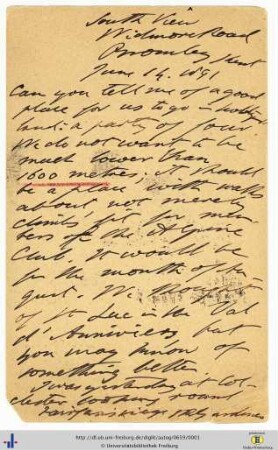 South View
Widmore Road
Bromley Kent
June 14. 1891
Can you tell me of a good
place for us to go in
land: a party of four
We do not want to be
much lower than
1600 metres, it should
be a place with walks
about not merely
climbs fit for mem
bers of the Alpine
Club. It would be
for the month of Au
gust. We thought
of St Luc in the Val
d'Anniviers but
you may know of
something better.
I was yesterday at Col-
chester looking round
http://dl.ub.uni-freiburg.de/diglit/autog/0659/0001
© Universitätsbibliothek Freiburg